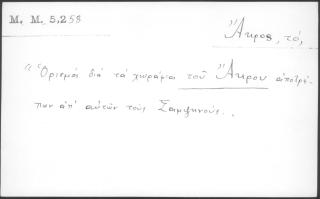 M. M. 5,258
Ἄκρος, τό,
"Ὁρισμοὶ διὰ τὰ χωράφια τοῦ Ἄκρου ἀποτρέ-
πων ἀπ' αὐτῶν τοὺς Σαμψηνούς.